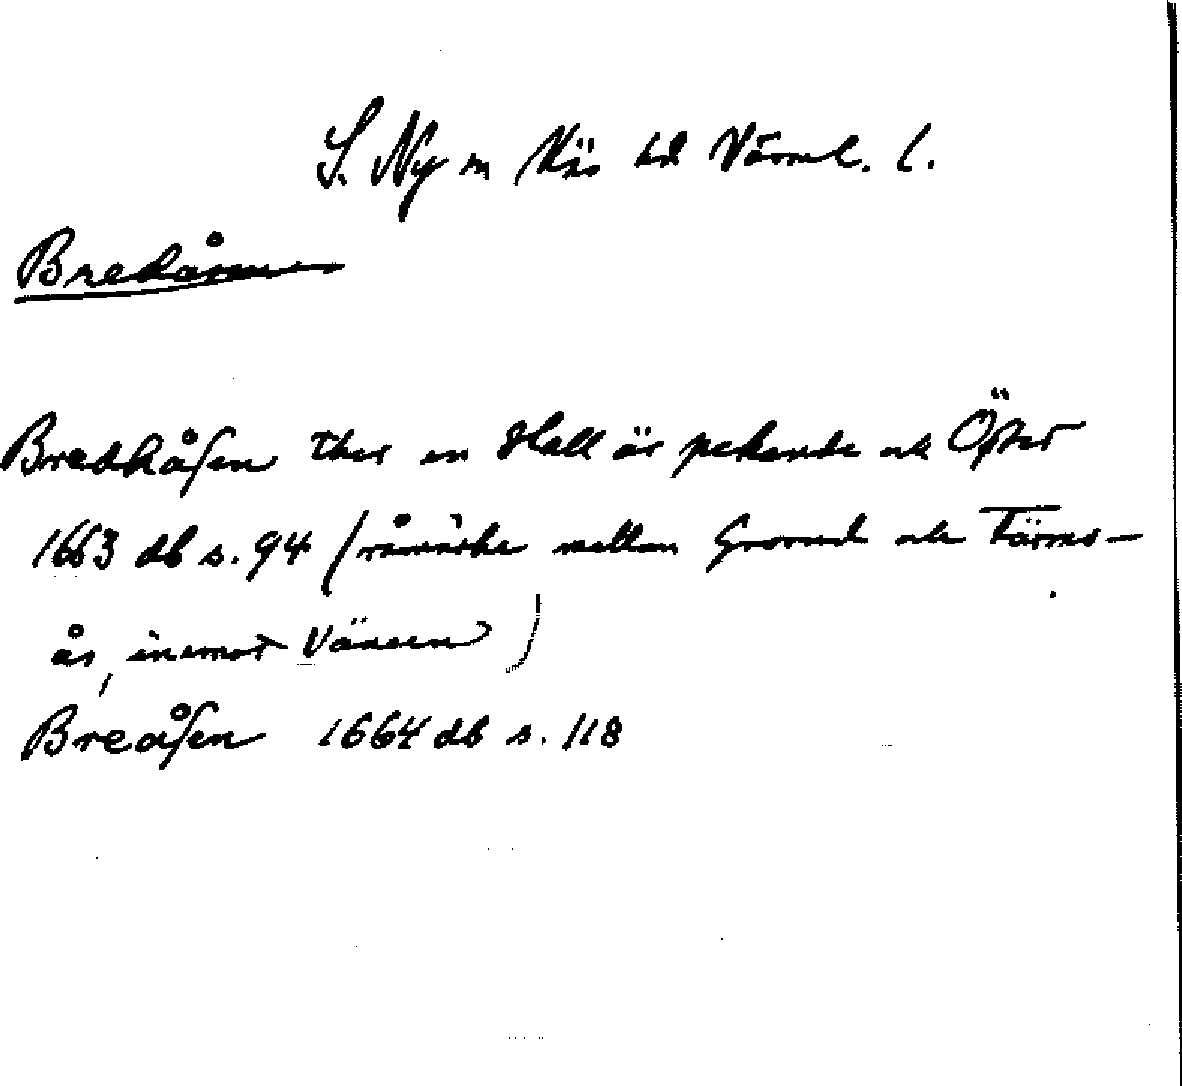 S. Ny sn Näs hd Värml. l.
Bredåsen
Bredhåsen Ther en Hall är pekande uti Öster
1663 db s. 94 (råmärke mellan Grorud och Tärns-
ås, inemot Vänern)
Breåsen 1664 db s. 118